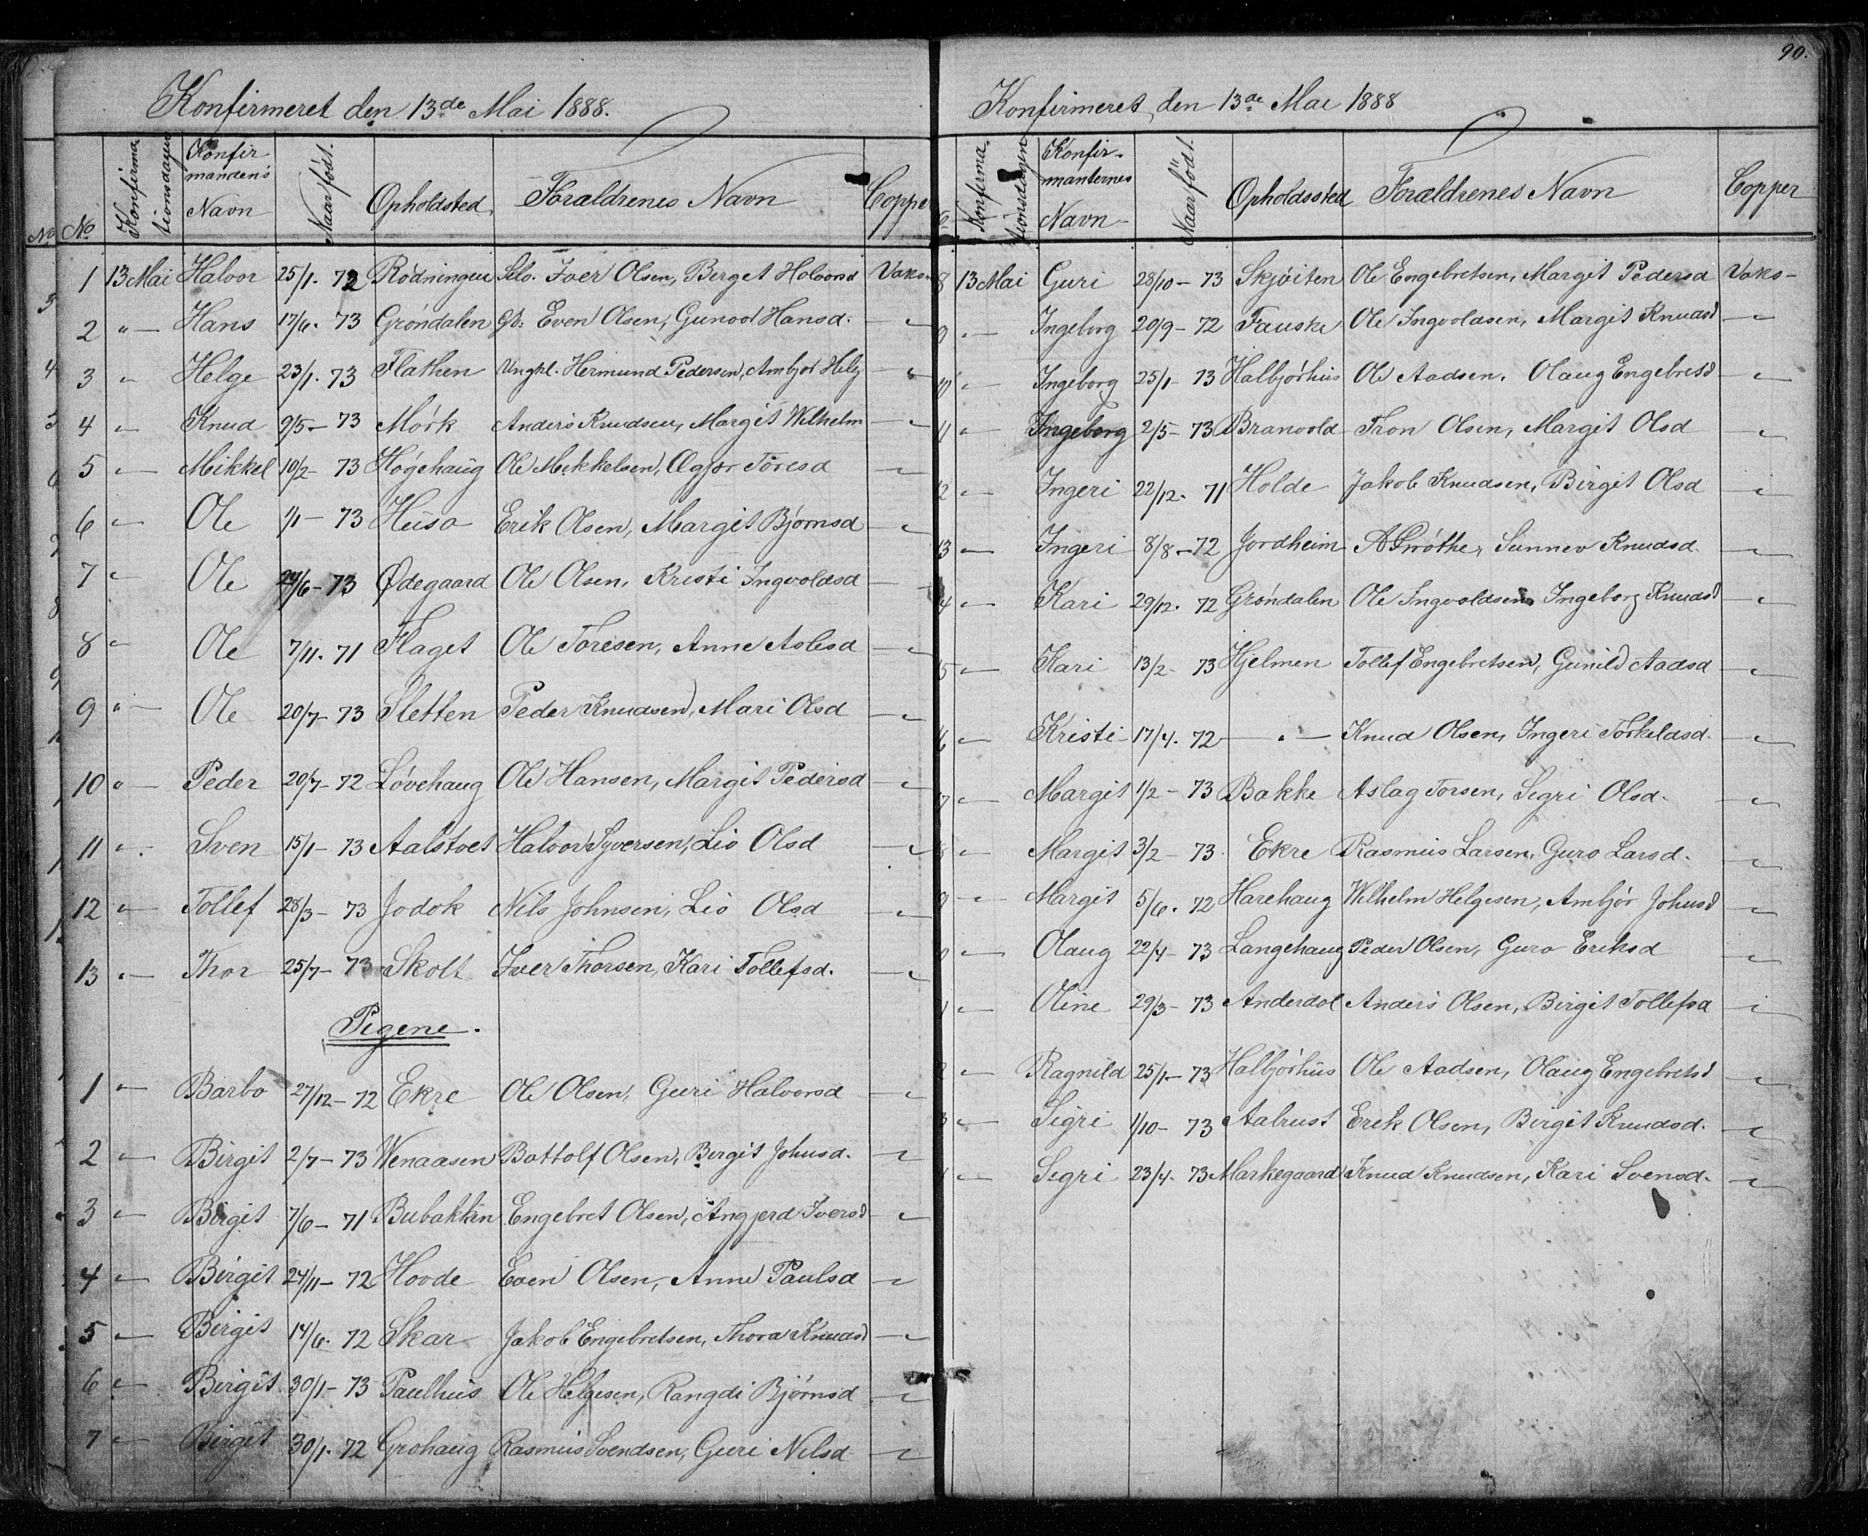 Konfirmeret den 13de Mai 1888.
No No Konfirmationsdagen Konfirmandens Navn Naar født. Opholdsted Foraldrenes Navn Copper
1 13 Mai Halvor 25/1. 72 Rødningen Selv. Iver Olsen, Berget Halvorsd Vaks-
2 "- Hans 17/6. 73 Grøndalen Gb: Even Olsen, Gunvor Hansd. -"-
3 " Helge 23/1. 73 Flathen Ungkl. Hermund Pedersen, Ambjør Helg -"-
4 " Knud 9/5- 73 Mørk Anders Knudsen, Margit Wilhelm -"-
5 "- Mikkel 10/2- 73 Høgehaug Ole Mikkelsen, Toresd -"-
6 " Ole 1/1- 73 Huso Erik Olsen, Margit Bjørnsd -"-
7 " Ole 29/6-73 Ødegaard Ole Olsen, Kristi Ingvoldsd -"-
8 " Ole 7/11. 71 Flaget Ole Toresen, Anne Aslesd -"-
9 "- Ole 20/7- 73 Sletten Peder Knudsen, Mari Olsd -"-
10 "- Peder 20/7- 72 Løvehaug Ole Hansen, Margit Pedersd -"-
11 "- Sven 15/1- 73 Aalstvet Halvor Syversen, Liv Olsd -"-
12 "- Tollef 28/3- 73 Jodok Nils Johnsen, Liv Olsd -"-
13 "- Thor 25/7- 73 Skolt Iver Thorsen, Kari Tollefsd. -"-
Pigene.
1 "- Barbo 27/12-72 Ekre Ole Olsen, Guri Halvorsd -"-
2 "- Birgit 2/7-73 Wenaasen Bottolf Olsen, Birgit Johnsd. -"-
3 "- Birgit 7/6- 71 Bubakken Engebret Olsen, Angjerd Iversd -"-
4 "- Birgit 24/11- 72 Hovde Even Olsen, Anne Paulsd -"-
5 "- Birgit 14/6. 72 Skar Jakob Engebretsen, Thora Knudsd -"-
6 "- Birgit 30/1-73 Paulhus Ole Helgesen, Rangdi Bjørnsd -"-
7 "- Birgit 30/1. 72 Grohaug Rasmus Svendsen, Guri Nilsd -"-
90.
Konfirmeret den 13de Mai 1888
Konfirmationsdagen Konfirmanternes Navn Naar født. Opholdssted Foraldrenes Navn Copper
8 13 Mai Guri 28/10- 73 Skjøiten Ole Engebretsen, Margit Pedersd Vaks-
9 "- Ingeborg 29/9- 72 Fauske Ole Ingvoldsen, Margit Knudsd -"-
10 "- Ingeborg 25/1- 73 Halbjørhus Ole Aadsen. Olaug Engebretsd -"-
11 "- Ingeborg 2/5- 73 Branvold Tron Olsen, Margit Olsd -"-
12 "- Ingeri 22/12. 71 Holde Jakob Knudsen, Birgit Olsd -"-
13 "- Ingeri 8/8-72 Jordheim A Grøthe, Sunnev Knudsd. -"-
4 "- Kari 29/12. 72 Grøndalen Ole Ingvoldsen, Ingeborg Knudsd -"-
5 "- Kari 13/2- 73 Hjelmen Tollef Engebretsen, Gunild Aadsd -"-
6 "- Kristi 17/4. 72 -"- Knud Olsen, Ingeri Torkeldsd. -"-
7 "- Margit 1/2- 73 Bakke Aslag Torsen, Sigri Olsd. -"-
8 "- Margit 3/2- 73. Ekre Rasmus Larsen, Guro Larsd. -"-
9 "- Margit 5/6. 72 Harehaug Wilhelm Helgesen, Ambjør Johnsd -"-
0 "- Olaug 22/4- 73 Langehaug Peder Olsen, Guro Eriksd -"-
1 "- Oline 29/3- 73 Anderdol Anders Olsen, Birgit Tollefsd -"-
2 "- Ragnild 25/1-73 Halbjørhus Ole Aadsen, Olaug Engebretsd -"-
3 "- Sigri 1/10- 73 Aalrust Erik Olsen, Birgit Knudsd. -"-
"- Sigri 23/4. 73 Markegaard Knud Knudsen, Kari Svensd. -"-